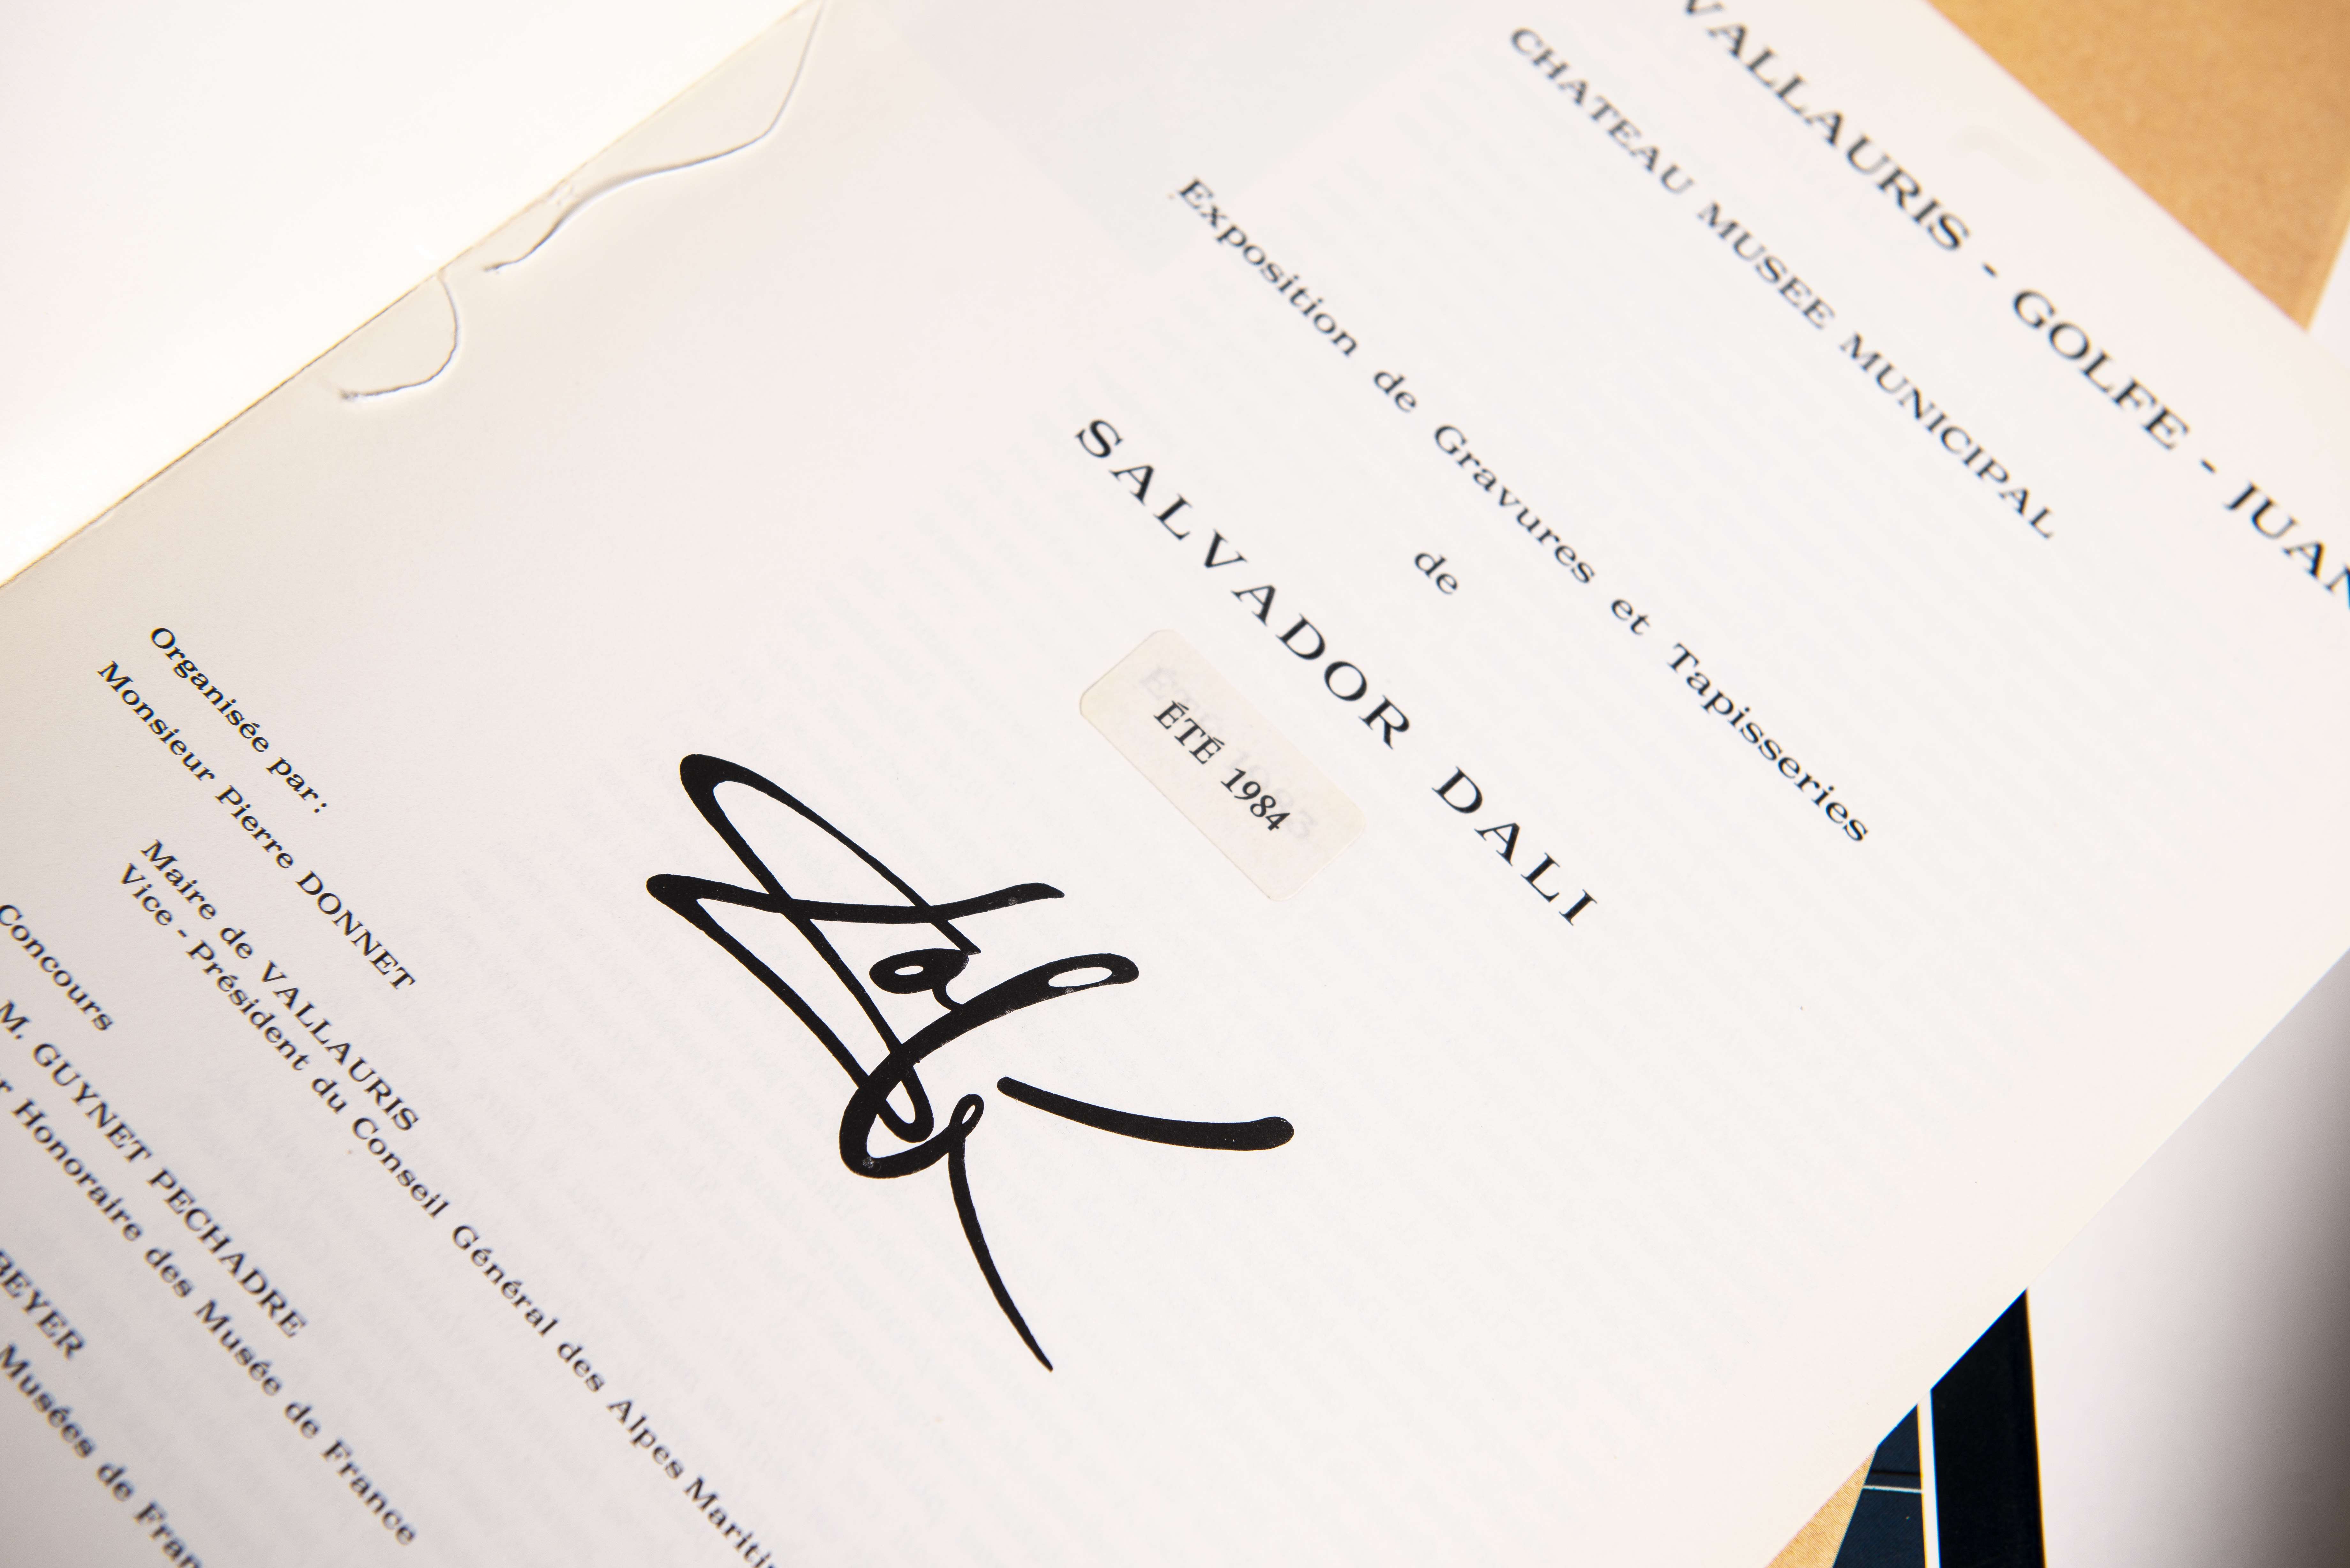 VALLAURIS - GOLFE - JUAN
CHATEAU MUSEE MUNICIPAL
Exposition de Gravures et Tapisseries
de
SALVADOR DALI
ÉTÉ 1984
Organisée par:
Monsieur Pierre DONNET
Maire de VALLAURIS
Vice - Président du Conseil Général des Alpes Mariti
Concours
M. GUYNET PECHADRE
r Honoraire des Musée de France
BEYER
Musées de Fran